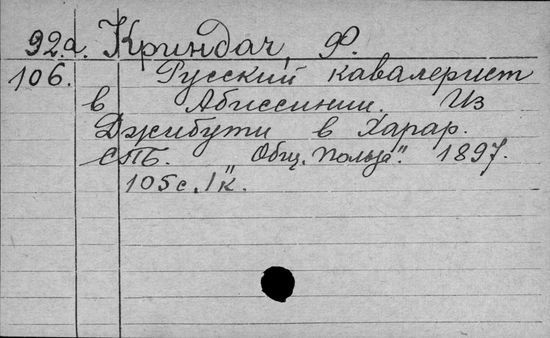 92а. Криндач, Ф.
106. Русский кавалерист
в Абиссинии. Из
Джибути в Харар.
СПБ. Общ. "Польза". 1897.
105 с. 1 к.